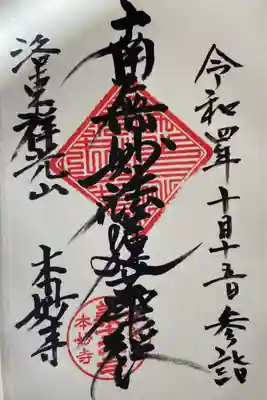 令和四年十月十五日参詣
南無妙法蓮華経
洛東祥光山
本妙寺
本妙寺